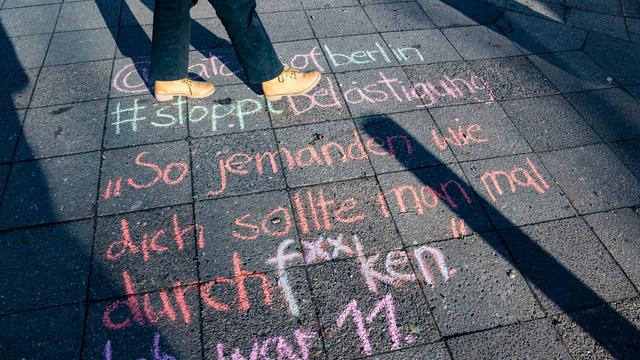 of berlin
#stoppt Belästigung
„So jemanden wie
dich sollte man mal
durch f**ken."
Ich war 11.